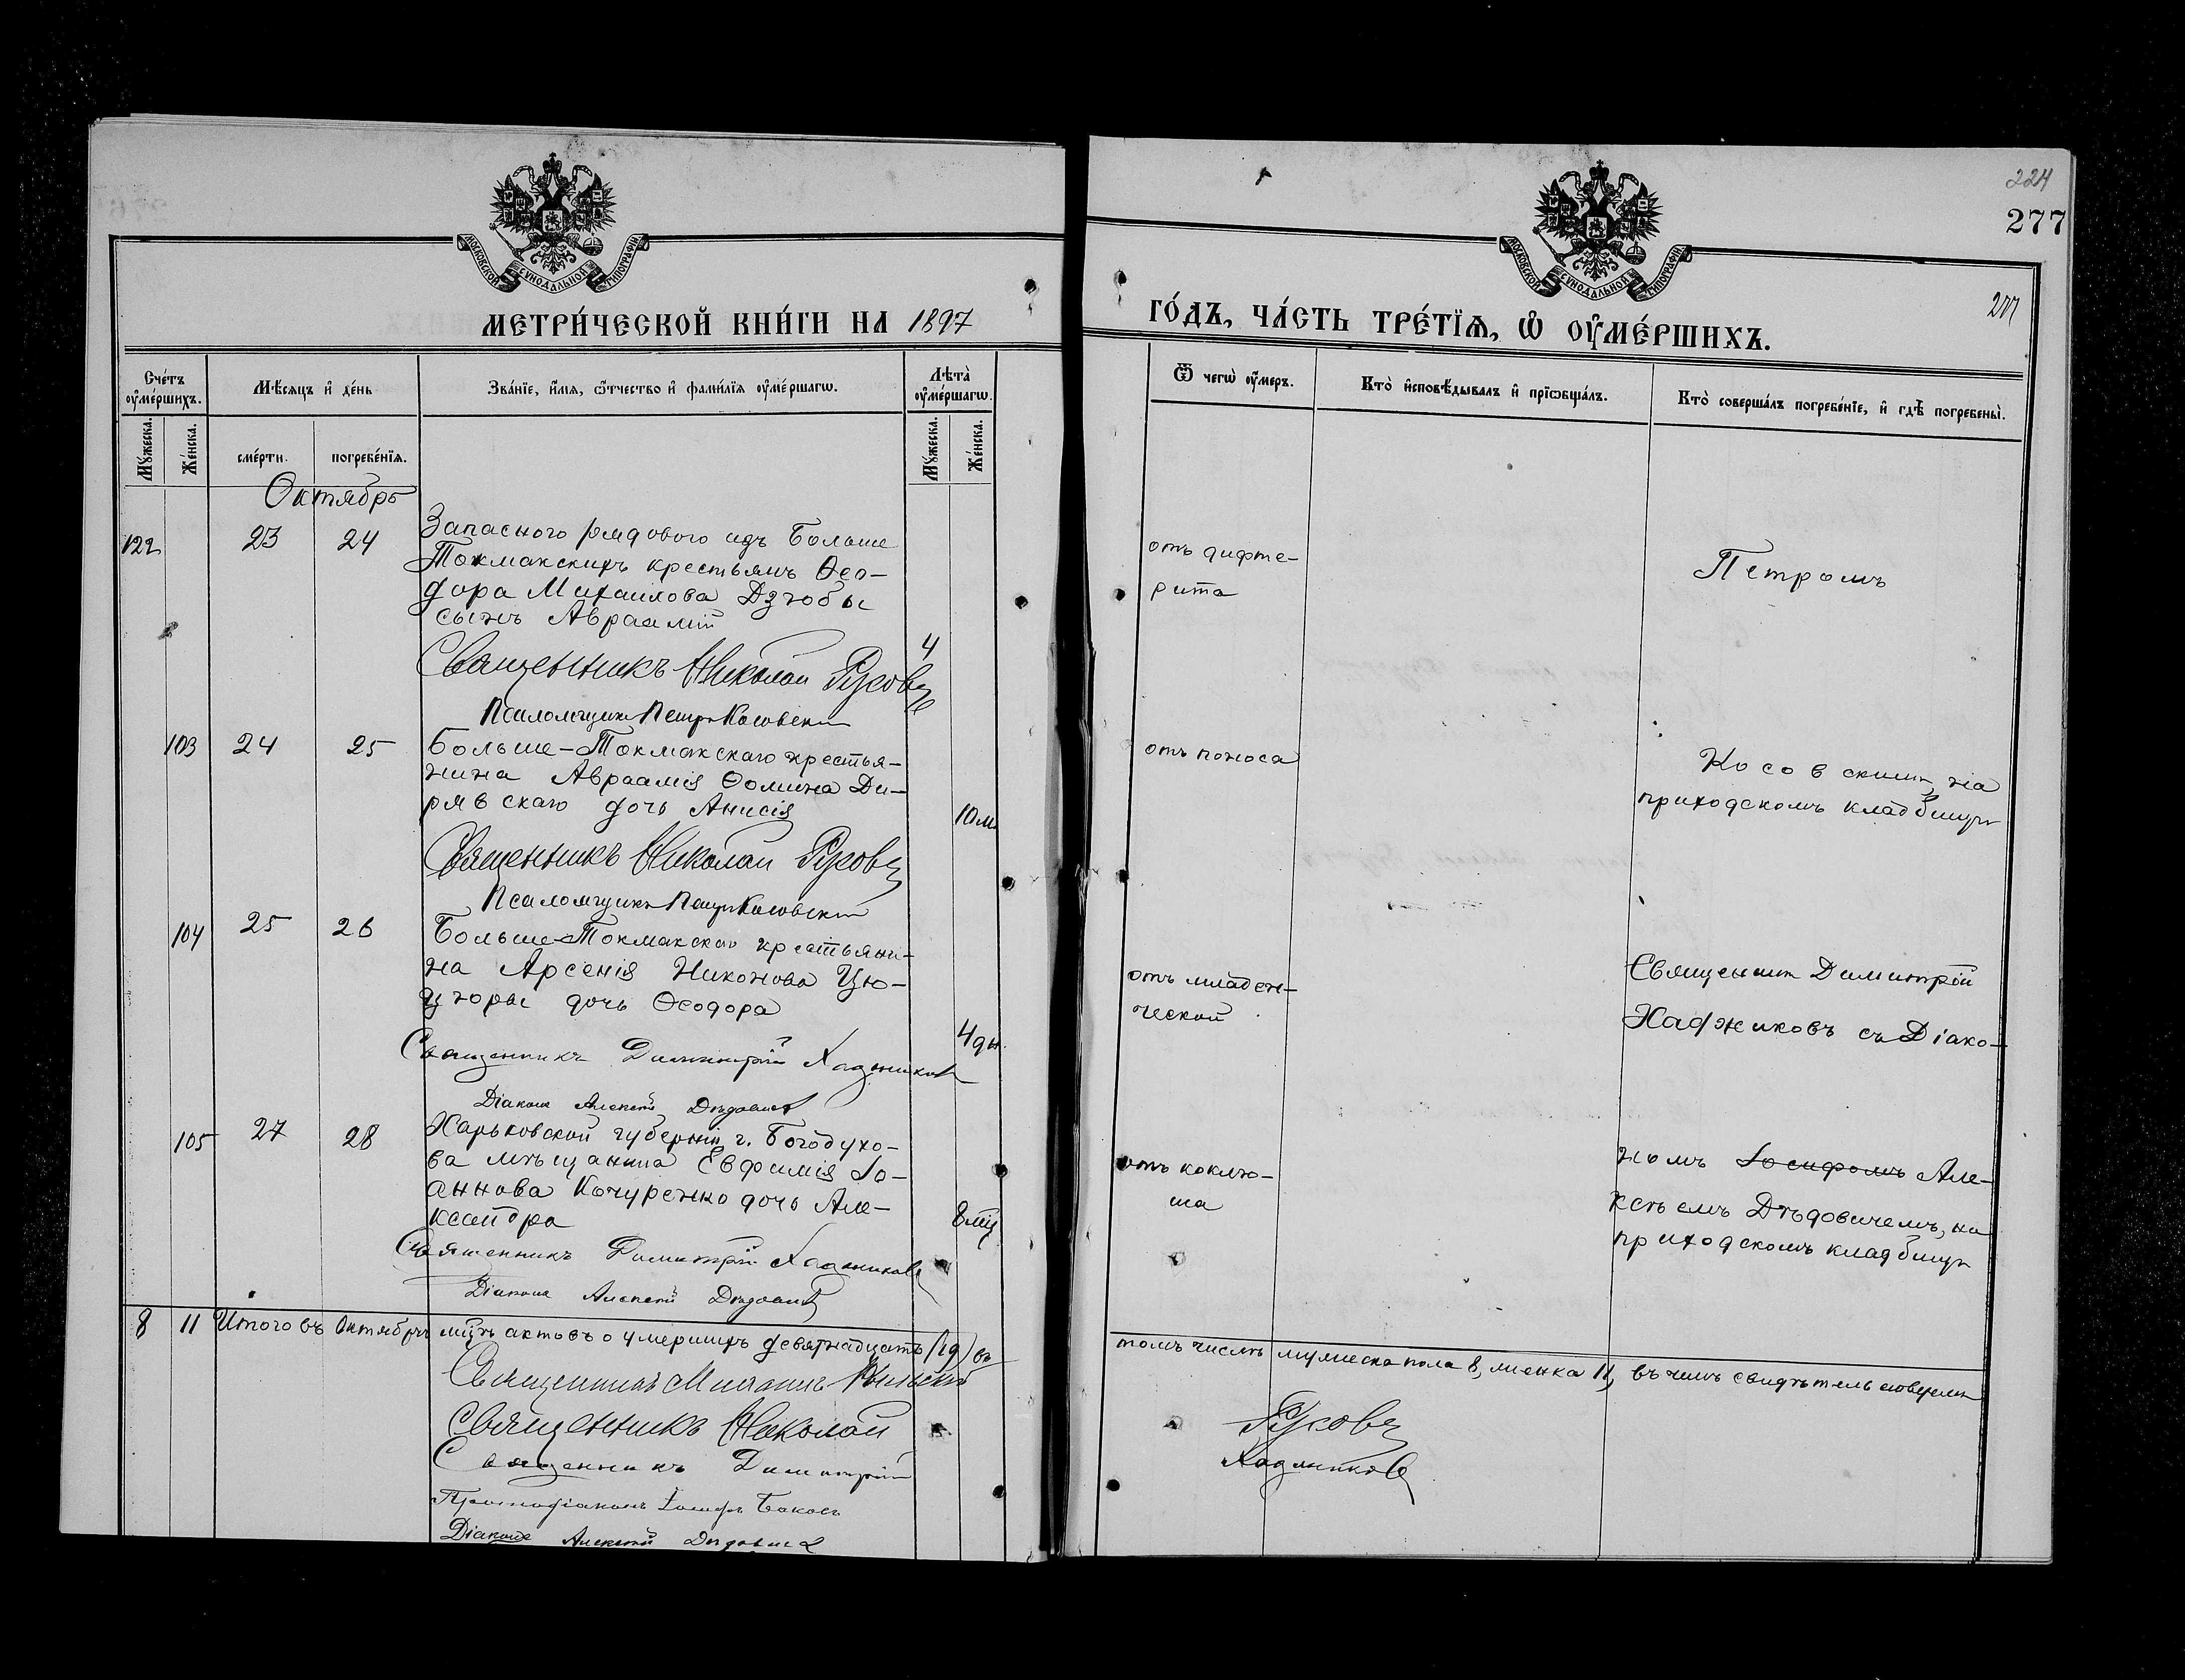 МОСКОВСКОЙ СУНОДАЛЬНОЙ ТИПОГРАФІИ
МЕТРИ́ЧЕСКОЙ КНИ́ГИ НА 1897
Сче́тъ оу҆ме́ршихъ.
Мѣ́сяцъ и҆ де́нь
Зва́нїе, и҆́мѧ, ѻ҆́тчество и҆ фами́лїѧ оу҆ме́ршагѡ.
Лѣ́та оу҆ме́ршагѡ.
Мꙋ́жеска.
Же́нска.
сме́рти.
погребе́нїѧ.
Мꙋ́жеска.
Же́нска.
Октябрь
122
23
24
Запаснаго рядового изъ Больше
Токмакскихъ крестьянъ Ѳео-
дора Михаилова Дзюбы
сынъ Авраамій
4
Священникъ Николай
Псаломщикъ Петръ Косовскій
103
24
25
Больше-Токмакскаго крестья-
нина Авраамія Ѳомина Ди-
рявскаго дочь Анисія
10 м.
Священникъ Николай
Псаломщикъ Петръ Косовскій
104
25
26
Больше-Токмакскаго крестьяни-
на Арсенія Никонова Цю-
цюры дочь Ѳеодора
4 дн.
Священникъ Димитрій Хаджиковъ
Діаконъ Алексѣй Дѣдовичъ
105
27
28
Харьковской губерніи г. Богодухо-
ва мѣщанина Евфимія Іо-
аннова Кочуренко дочь Але-
ксандра
8 мц
Священникъ Димитрій Хаджиковъ
Діаконъ Алексѣй Дѣдовичъ
8
11
Итого въ Октябрѣ мцѣ актовъ о умершихъ девятнадцать (19) въ
Священникъ Михаилъ
Священникъ Николай
Священникъ Димитрій
Протодіаконъ Іосифъ
Діаконъ Алексѣй Дѣдовичъ
224
277
277
МОСКОВСКОЙ СУНОДАЛЬНОЙ ТИПОГРАФІИ
ГО́ДЪ, ЧА́СТЬ ТРЕ́ТЇѦ, Ѡ҆ ОУ҆МЕ́РШИХЪ.
Ѿ чегѡ̀ оу҆́меръ.
Кто̀ и҆сповѣ́дывалъ и҆ прїѡбща́лъ.
Кто̀ соверша́лъ погребе́нїе, и҆ гдѣ̀ погребены̀.
отъ дифте-
рита
Петромъ
отъ поноса
Косовскимъ, на
приходскомъ кладбищѣ
отъ младен-
ческой
Священникъ Димитрій
Хаджиковъ съ Діако-
отъ коклю-
ша
номъ Іосифомъ Але-
ксѣемъ Дѣдовичемъ, на
приходскомъ кладбищѣ
томъ числѣ мужеска пола 8, женска 11, въ чемъ свидѣтельствуемъ
Хаджиковъ